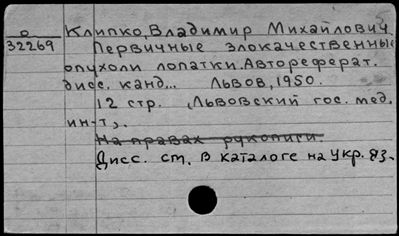 о
32269
Клипко, Владимир Михайлович.
Первичные злокачественные
опухоли лопатки. Автореферат.
дисс. канд... Львов, 1950.
12 стр. (Львовский гос. мед.
ин-т).
На правах рукописи.
Дисс. ст. в каталоге на укр. яз.